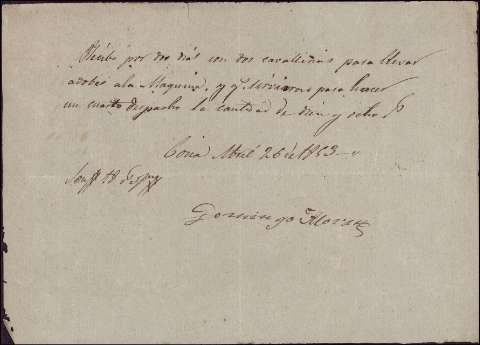 Recibi por dos dias con dos cavallerias para llevar
adobes ala Maquina, y q.e sirvieron para hacer
un cuarto despacho la cantidad de diez y ocho r.s
Coria Abril 26 de 1853
Son 18 r.s
Domingo Moran